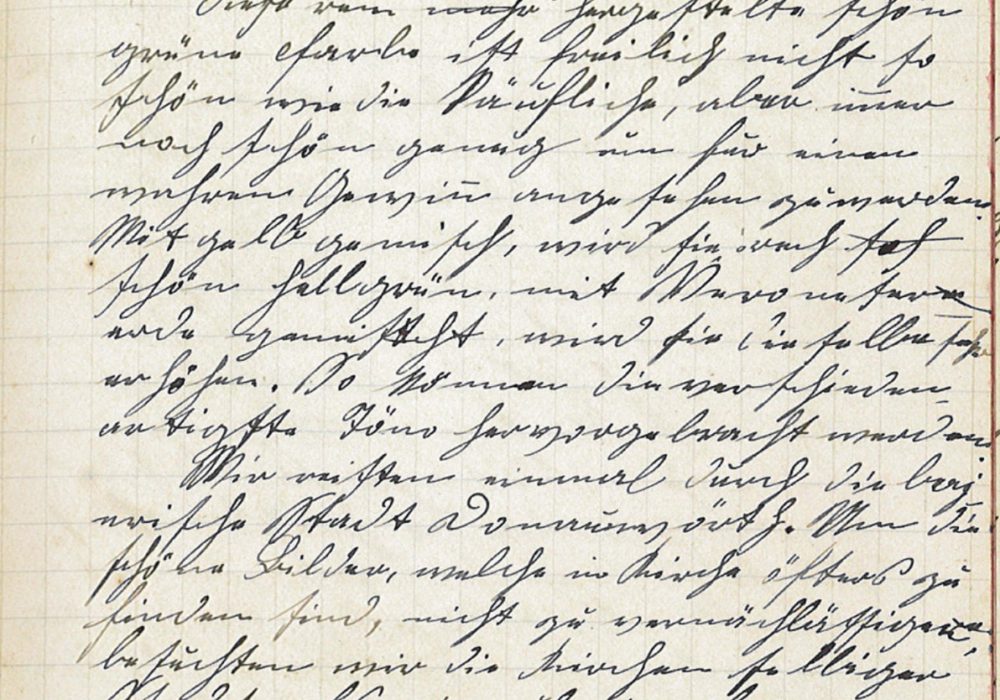 Diese rein mehr hergestelte schön
grüne Farbe ist freilich nicht so
schön wie die Käufliche, aber im̅er
noch schön genug um für einen
wahren Gewin̅ angesehen zu werden.
Mit gelb gemisch, wird sie noch
schön hellgrün, mit Veroneser
erde gemischt, wird sie dieselbe sehr
erhöhen. So können die verschieden-
artigste Töne hervorgebracht werden.
Wir reisten einmal durch die bai
erische Stadt Donauwörth. Um die
schöne Bilder, welche in Kirche öfters zu
finden sind, nicht zu vernachlässigen,
besuchten wir die Kirchen selbiger